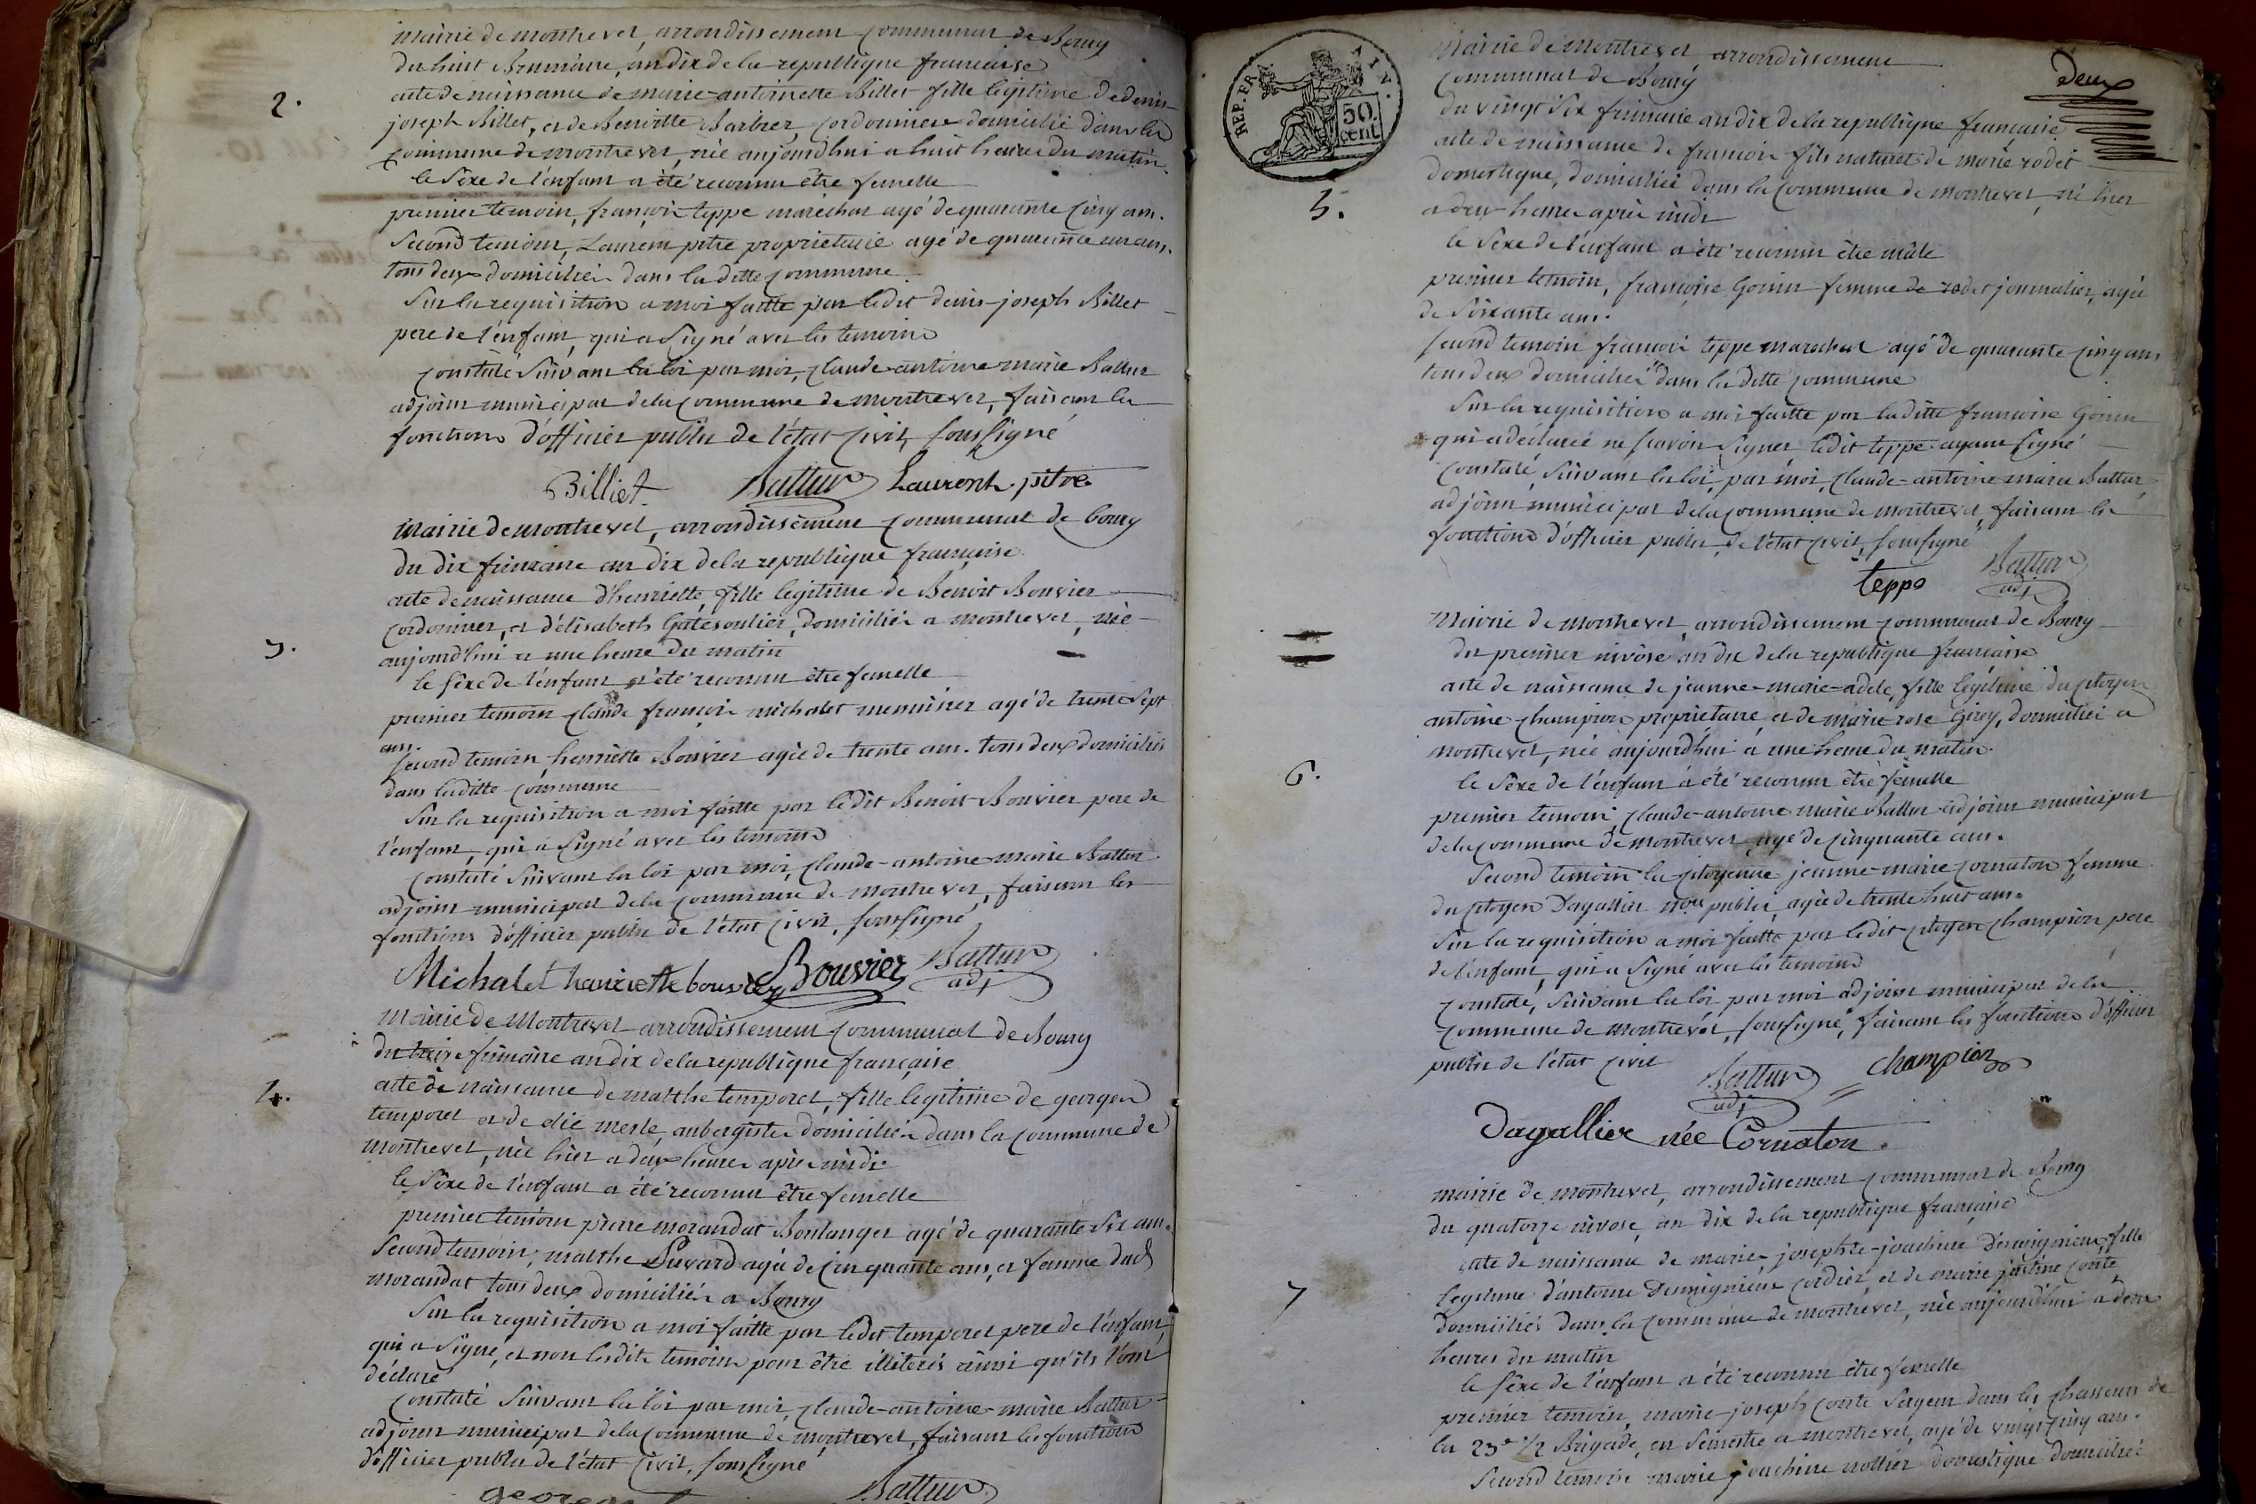 mairie de montrevel, arrondissement communal de Bourg
du huit Brumaire, an dix de la republique francaise
2. acte de naissance de marie-antoinette Billet fille legitime de denis-
joseph Billet, et de Benoitte Barbier, cordonnier domicilié dans la
commune de montrevel, née aujourdhui a huit heures du matin.
le sexe de l'enfant a été reconnu être femelle
premier temoin, françois teppe maréchal agé de quarante cinq ans.
second temoin, Laurent pitre proprietaire agé de quarante un ans.
tous deux domiciliés dans la ditte commune
sur la requisition a moi faitte par ledit denis-joseph Billet
pere de l'enfant, qui a signé avec les temoins
constaté suivant la loi par moi, claude-antoine marie Battur
adjoint municipal de la commune de montrevel, faisant la
fonctions d'officier public de l'état civil, soussigné
Billiet Battur Laurent pitre
Mairie de montrevel, arrondissement communal de bourg
du dix frimaire an dix de la republique française
acte de naissance d'henriette, fille legitime de Benoit Bouvier
cordonnier, et d'élisabeth Gatesoulier, domiciliés a montrevel, née
3. aujourd'hui a une heure du matin
le sexe de l'enfant a été reconnu être femelle
premier temoin claude françois michalet menuisier agé de trente sept
ans.
second temoin henriette Bouvier agée de trente ans. tous deux domiciliés
dans la ditte commune
sur la requisition a moi faitte par ledit Benoit Bouvier pere de
l'enfant, qui a signé avec les temoins
constaté suivant la loi par moi, claude-antoine marie Battur
adjoint municipal de la commune de montrevel, faisant les
fonctions d'officier public de l'état civil, soussigné
Michalet henriette bouvier Bouvier Battur
adj
mairie de Montrevel arrondissement communal de Bourg
du frimaire an dix de la republique française
4. acte de naissance de matthe temporel, fille legitime de georges
temporel et de merle, aubergistes domiciliés dans la commune de
montrevel, née hier a deux heures après midi
le sexe de l'enfant a été reconnu être femelle
premier temoin pierre morandat Boulanger agé de quarante six ans.
second temoin, matthe agée de cinquante ans, et femme dud
morandat, tous deux domiciliés a Bourg
sur la requisition a moi faitte par ledit temporel pere de l'enfant,
qui a signé, et non lesdits temoins pour être illiterés ainsi qu'ils l'ont
déclaré
constaté suivant la loi par moi, claude-antoine-marie Battur
adjoint municipal de la commune de montrevel, faisant les fonctions
d'officier public de l'état civil, soussigné
Battur
REP. FR.
50
cent
Mairie de montrevel, arrondissement
communal de Bourg
deux
du vingt six frimaire an dix de la republique française
acte de naissance de francois fils naturel de marie rodet
domestique, domiciliée dans la commune de montrevel, né hier
5. a deux heures après midi
le sexe de l'enfant a été reconnu être mâle
premier temoin, françoise Goin femme de rodet journalier, agée
de soixante ans.
second temoin françois teppe marechal agé de quarante cinq ans
tous deux domiciliés dans la ditte commune
sur la requisition a moi faitte par laditte francoise Goin
qui a déclaré ne scavoir signer ledit teppe ayant signé
constaté, suivant la loi, par moi, claude-antoine marie Battur,
adjoint municipal de la commune de montrevel, faisant les
fonctions d'officier public de l'état civil, soussigné
teppe Battur
adj
Mairie de montrevel, arrondissement communal de Bourg
du premier nivôse an dix de la republique francaise
acte de naissance de jeanne-marie-adele, fille légitime du citoyen
antoine champion proprietaire, et de marie rose Girey, domiciliés a
montrevel, née aujourd'hui a une heure du matin.
6. le sexe de l'enfant a été reconnu être femelle
premier temoin, claude-antoine marie Battur adjoint municipal
de la commune de montrevel agé de cinquante ans.
second temoin la citoyenne jeanne-marie cornaton femme
du citoyen Dagallier nore public, agée de trente huit ans.
sur la requisition a moi faitte par ledit citoyen champion pere
de l'enfant, qui a signé avec les temoins
constaté, suivant la loi, par moi adjoint municipal de la
commune de montrevel, soussigné, faisant les fonctions d'officier
public de l'état civil
Battur champion
adj
Dagallier née Cornaton.
mairie de montrevel, arrondissement communal de Bourg
du quatorze nivose, an dix de la republique française
acte de naissance de marie-josephte-joachine fille
legitime d'antoine cordier, et de marie justine conte
7 domiciliés dans la commune de montrevel, née aujourd'hui a deux
heures du matin
le sexe de l'enfant a été reconnu être femelle
premier temoin, marie-joseph conte sergent dans les chasseurs de
la 23e 1/2 Brigade, en semestre a montrevel, agé de vingt cinq ans.
second temoin marie joachine domestique domiciliée